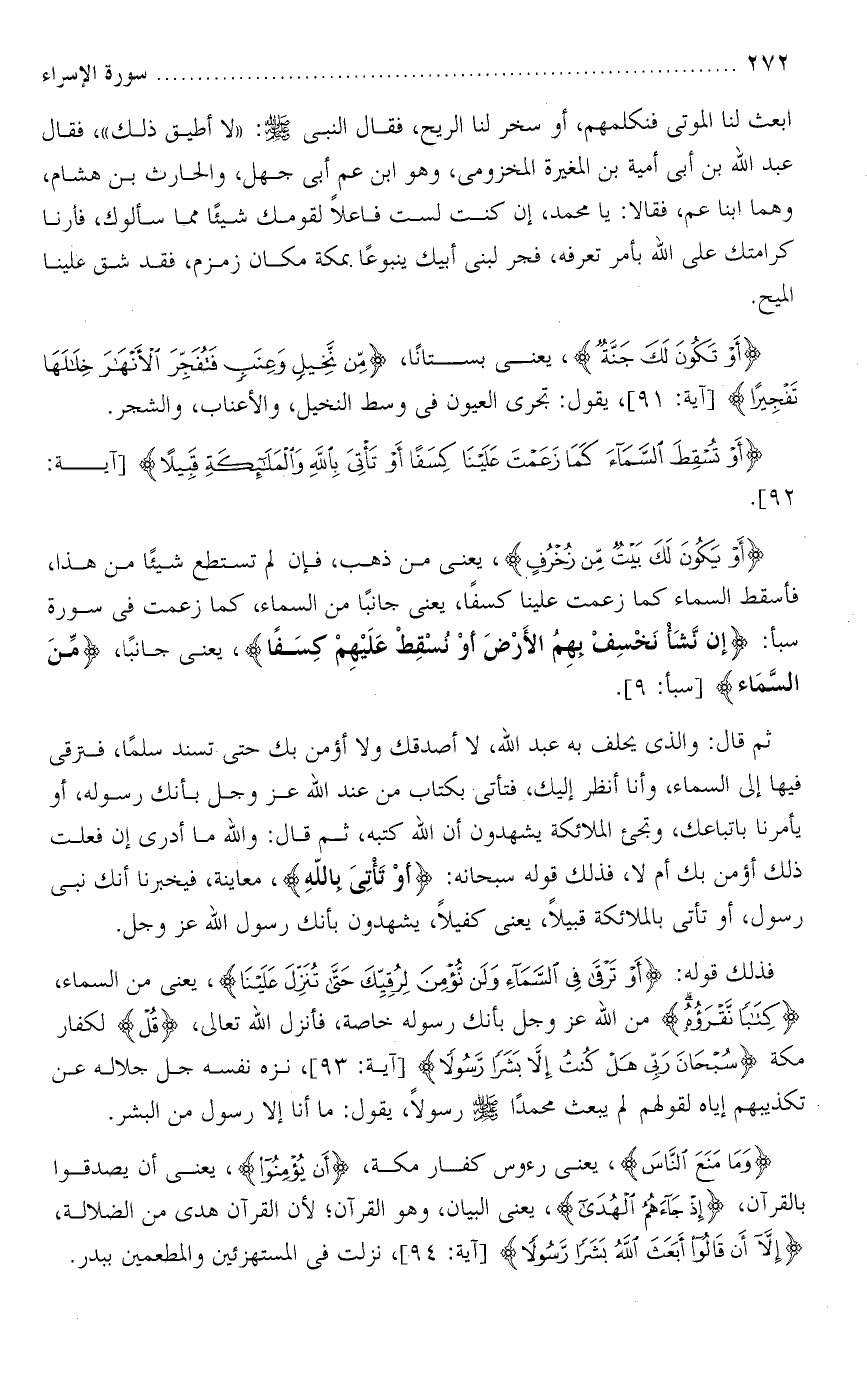 ٢٧٢ ........................................................................ سورة الإسراء
ابعث لنا الموتى فنكلمهم، أو سخر لنا الريح، فقال النبى ﷺ: «لا أطيق ذلك»، فقال
عبد الله بن أبى أمية بن المغيرة المخزومى، وهو ابن عم أبى جهل، والحارث بن هشام،
وهما ابنا عم، فقالا: يا محمد، إن كنت لست فاعلاً لقومك شيئًا مما سألوك، فأرنا
كرامتك على الله بأمر تعرفه، فجر لبنى أبيك ينبوعًا بمكة مكان زمزم، فقد شق علينا
الميح.
﴿أَوْ تَكُونَ لَكَ جَنَّةٌ﴾، يعنى بستانًا، ﴿مِّن نَّخِيلٍ وَعِنَبٍ فَتُفَجِّرَ ٱلْأَنْهَٰرَ خِلَٰلَهَا
تَفْجِيرًا﴾ [آية: ٩١]، يقول: تجرى العيون فى وسط النخيل، والأعناب، والشجر.
﴿أَوْ تُسْقِطَ ٱلسَّمَآءَ كَمَا زَعَمْتَ عَلَيْنَا كِسَفًا أَوْ تَأْتِىَ بِٱللَّهِ وَٱلْمَلَٰٓئِكَةِ قَبِيلًا﴾ [آية:
٩٢].
﴿أَوْ يَكُونَ لَكَ بَيْتٌ مِّن زُخْرُفٍ﴾، يعنى من ذهب، فإن لم تستطع شيئًا من هذا،
فأسقط السماء كما زعمت علينا كسفًا، يعنى جانبًا من السماء، كما زعمت فى سورة
سبأ: ﴿إِن نَّشَأْ نَخْسِفْ بِهِمُ الأَرْضَ أَوْ نُسْقِطْ عَلَيْهِمْ كِسَفًا﴾، يعنى جانبًا، ﴿مِّنَ
السَّمَاء﴾ [سبأ: ٩].
ثم قال: والذى يحلف به عبد الله، لا أصدقك ولا أؤمن بك حتى تسند سلمًا، فترقى
فيها إلى السماء، وأنا أنظر إليك، فتأتى بكتاب من عند الله عز وجل بأنك رسوله، أو
يأمرنا باتباعك، وتجئ الملائكة يشهدون أن الله كتبه، ثم قال: والله ما أدرى إن فعلت
ذلك أؤمن بك أم لا، فذلك قوله سبحانه: ﴿أَوْ تَأْتِىَ بِاللَّهِ﴾، معاينة، فيخبرنا أنك نبى
رسول، أو تأتى بالملائكة قبيلاً، يعنى كفيلاً، يشهدون بأنك رسول الله عز وجل.
فذلك قوله: ﴿أَوْ تَرْقَىٰ فِى ٱلسَّمَآءِ وَلَن نُّؤْمِنَ لِرُقِيِّكَ حَتَّىٰ تُنَزِّلَ عَلَيْنَا﴾، يعنى من السماء،
﴿كِتَٰبًا نَّقْرَؤُهُۥ﴾ من الله عز وجل بأنك رسوله خاصة، فأنزل الله تعالى، ﴿قُلْ﴾ لكفار
مكة ﴿سُبْحَانَ رَبِّى هَلْ كُنتُ إِلَّا بَشَرًا رَّسُولًا﴾ [آية: ٩٣]، نزه نفسه جل جلاله عن
تكذيبهم إياه لقولهم لم يبعث محمدًا ﷺ رسولاً، يقول: ما أنا إلا رسول من البشر.
﴿وَمَا مَنَعَ ٱلنَّاسَ﴾، يعنى رءوس كفار مكة، ﴿أَن يُؤْمِنُوٓا۟﴾، يعنى أن يصدقوا
بالقرآن، ﴿إِذْ جَآءَهُمُ ٱلْهُدَىٰٓ﴾، يعنى البيان، وهو القرآن؛ لأن القرآن هدى من الضلالة،
﴿إِلَّآ أَن قَالُوٓا۟ أَبَعَثَ ٱللَّهُ بَشَرًا رَّسُولًا﴾ [آية: ٩٤]، نزلت فى المستهزئين والمطعمين ببدر.